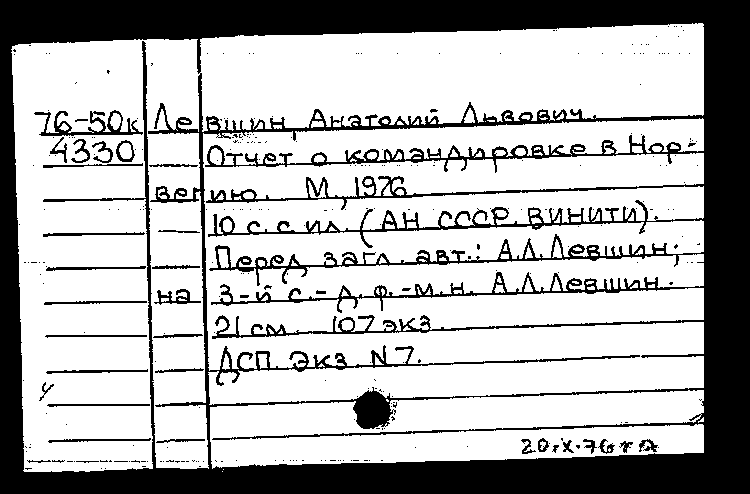 76-50к Левшин, Анатолий Львович.
4330 Отчет о командировке в Нор-
вегию. М., 1976.
10 с. с ил. (АН СССР. ВИНИТИ).
Перед загл. авт.: А.Л.Левшин;
на 3-й с.- д.ф.-м.н. А.Л.Левшин.
21 см. 107 экз.
ДСП. Экз. N 7.
20.X.76